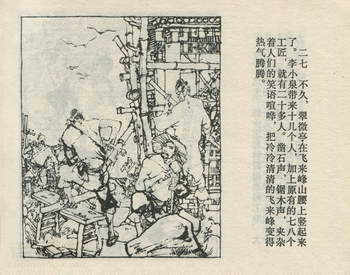 二七　不久，翠微亭在飞来峰山腰上竖起来
了。李小泉带来十几个人，加上原有的七八个
工匠，就有二十多人。凿石声，锯木声，夹杂
着人们的笑语喧哗，把冷冷清清的飞来峰变得
热气腾腾。